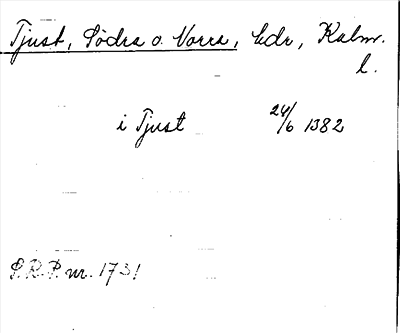 Tjust, Södra o. Norra, hdr, Kalm.
l.
i Tjust 24/6 1382
S.R.P. nr. 1731